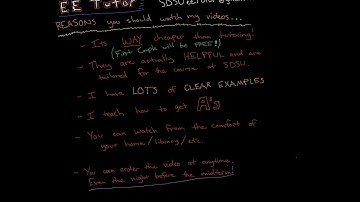 EE Tutor
REASONS you should watch my videos...
- Its WAY cheaper than tutoring!
(First Couple will be FREE!)
- They are actually HELPFUL and are
tailored for the course at SDSU.
- I have LOTS of CLEAR EXAMPLES
- I teach how to get A's
- You can watch from the comfort of
your home/library/etc.
- You can order the video at anytime,
Even the night before the midterm!